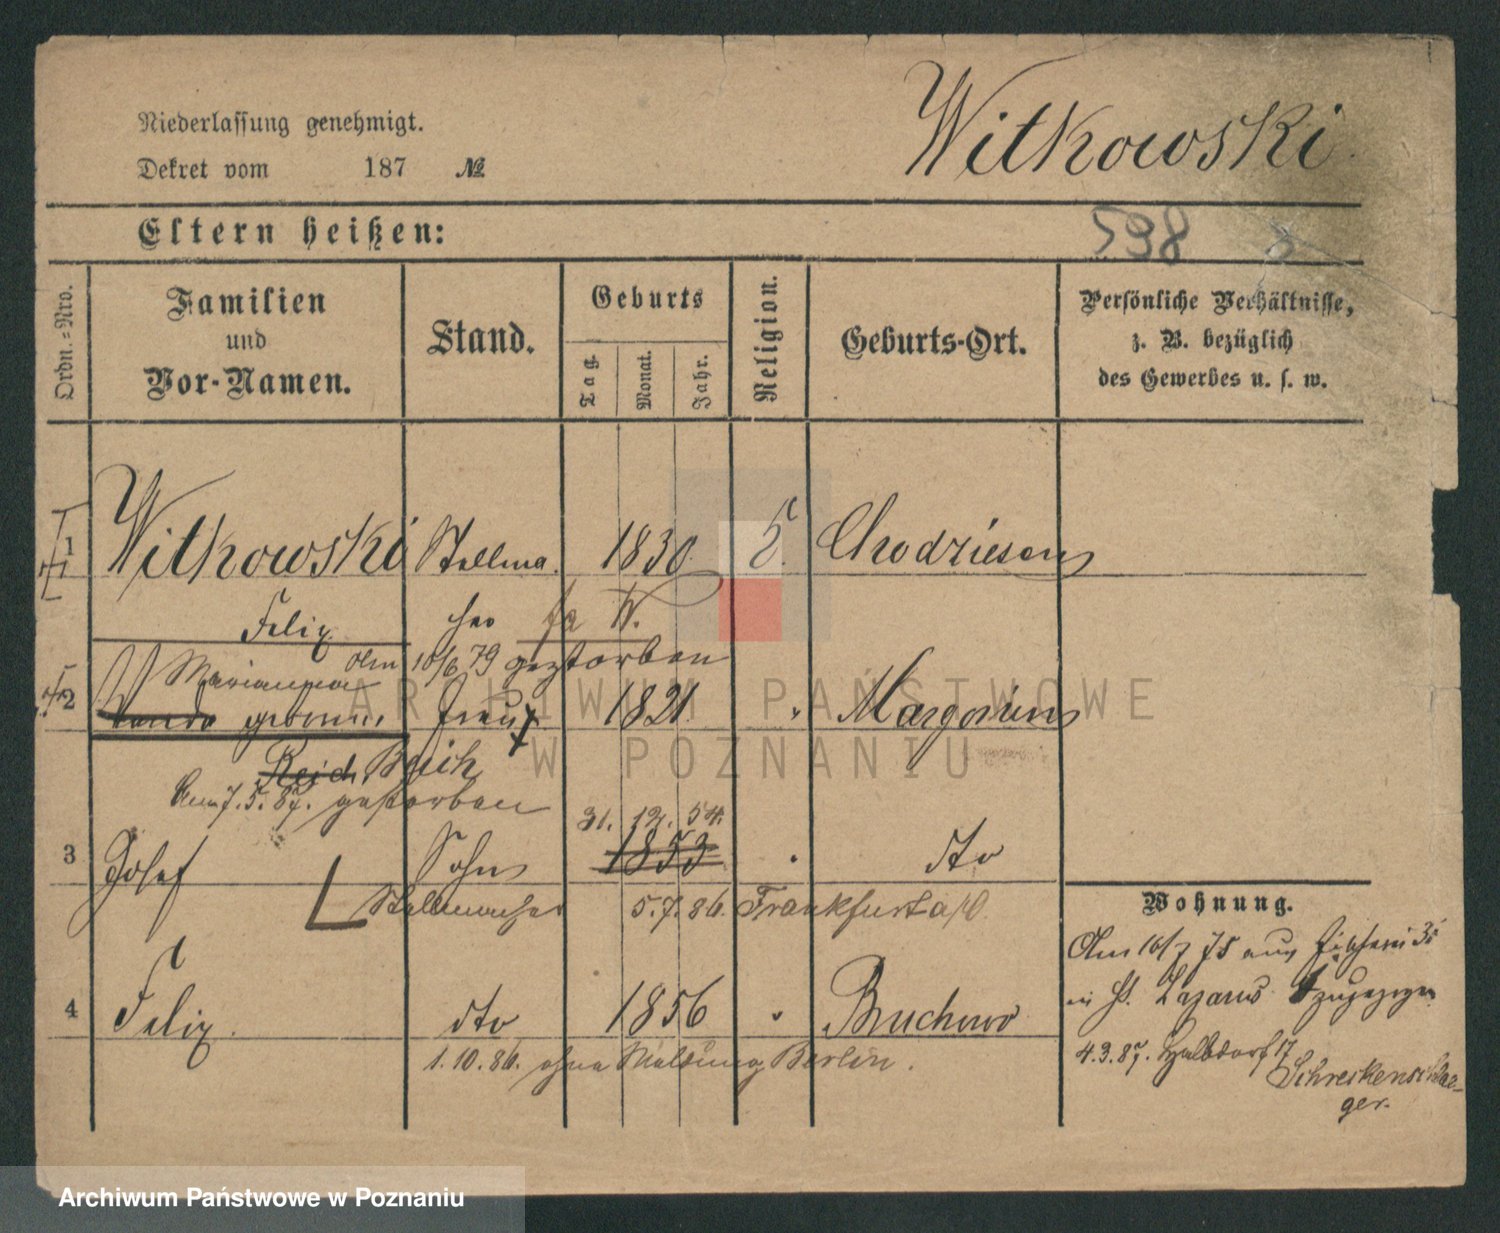 Niederlassung genehmigt.
Witkowski
Dekret vom 187 №
Eltern heißen:
598
Ordn.-Nro.
Familien
und
Vor-Namen.
Stand.
Geburts
Tag.
Monat.
Jahr.
Religion.
Geburts-Ort.
Persönliche Verhältnisse,
z. B. bezüglich
des Gewerbes u. s. w.
1 Witkowski Stellma 1830 Chodziesen
Felix cher
10/6 79 gestorben
Marianna
2 Wanda geborne Frau 1821 Margonin
Reich Buich
Am 7. 5. 87. gestorben
31. 12. 54.
3 Josef Sohn 1853 dto
Stellmacher 5.7.86. Frankfurt a/O.
Wohnung.
Am 16/7 75 aus 35
in St. Lazarus zugezogen
4 Felix. dto 1856 Bruchowo
1.10.86. ohne Meldung Berlin.
4.3.87. Halbdorf 17
Schreckenschlae-
ger.
ARCHIWUM PAŃSTWOWE
W POZNANIU
Archiwum Państwowe w Poznaniu